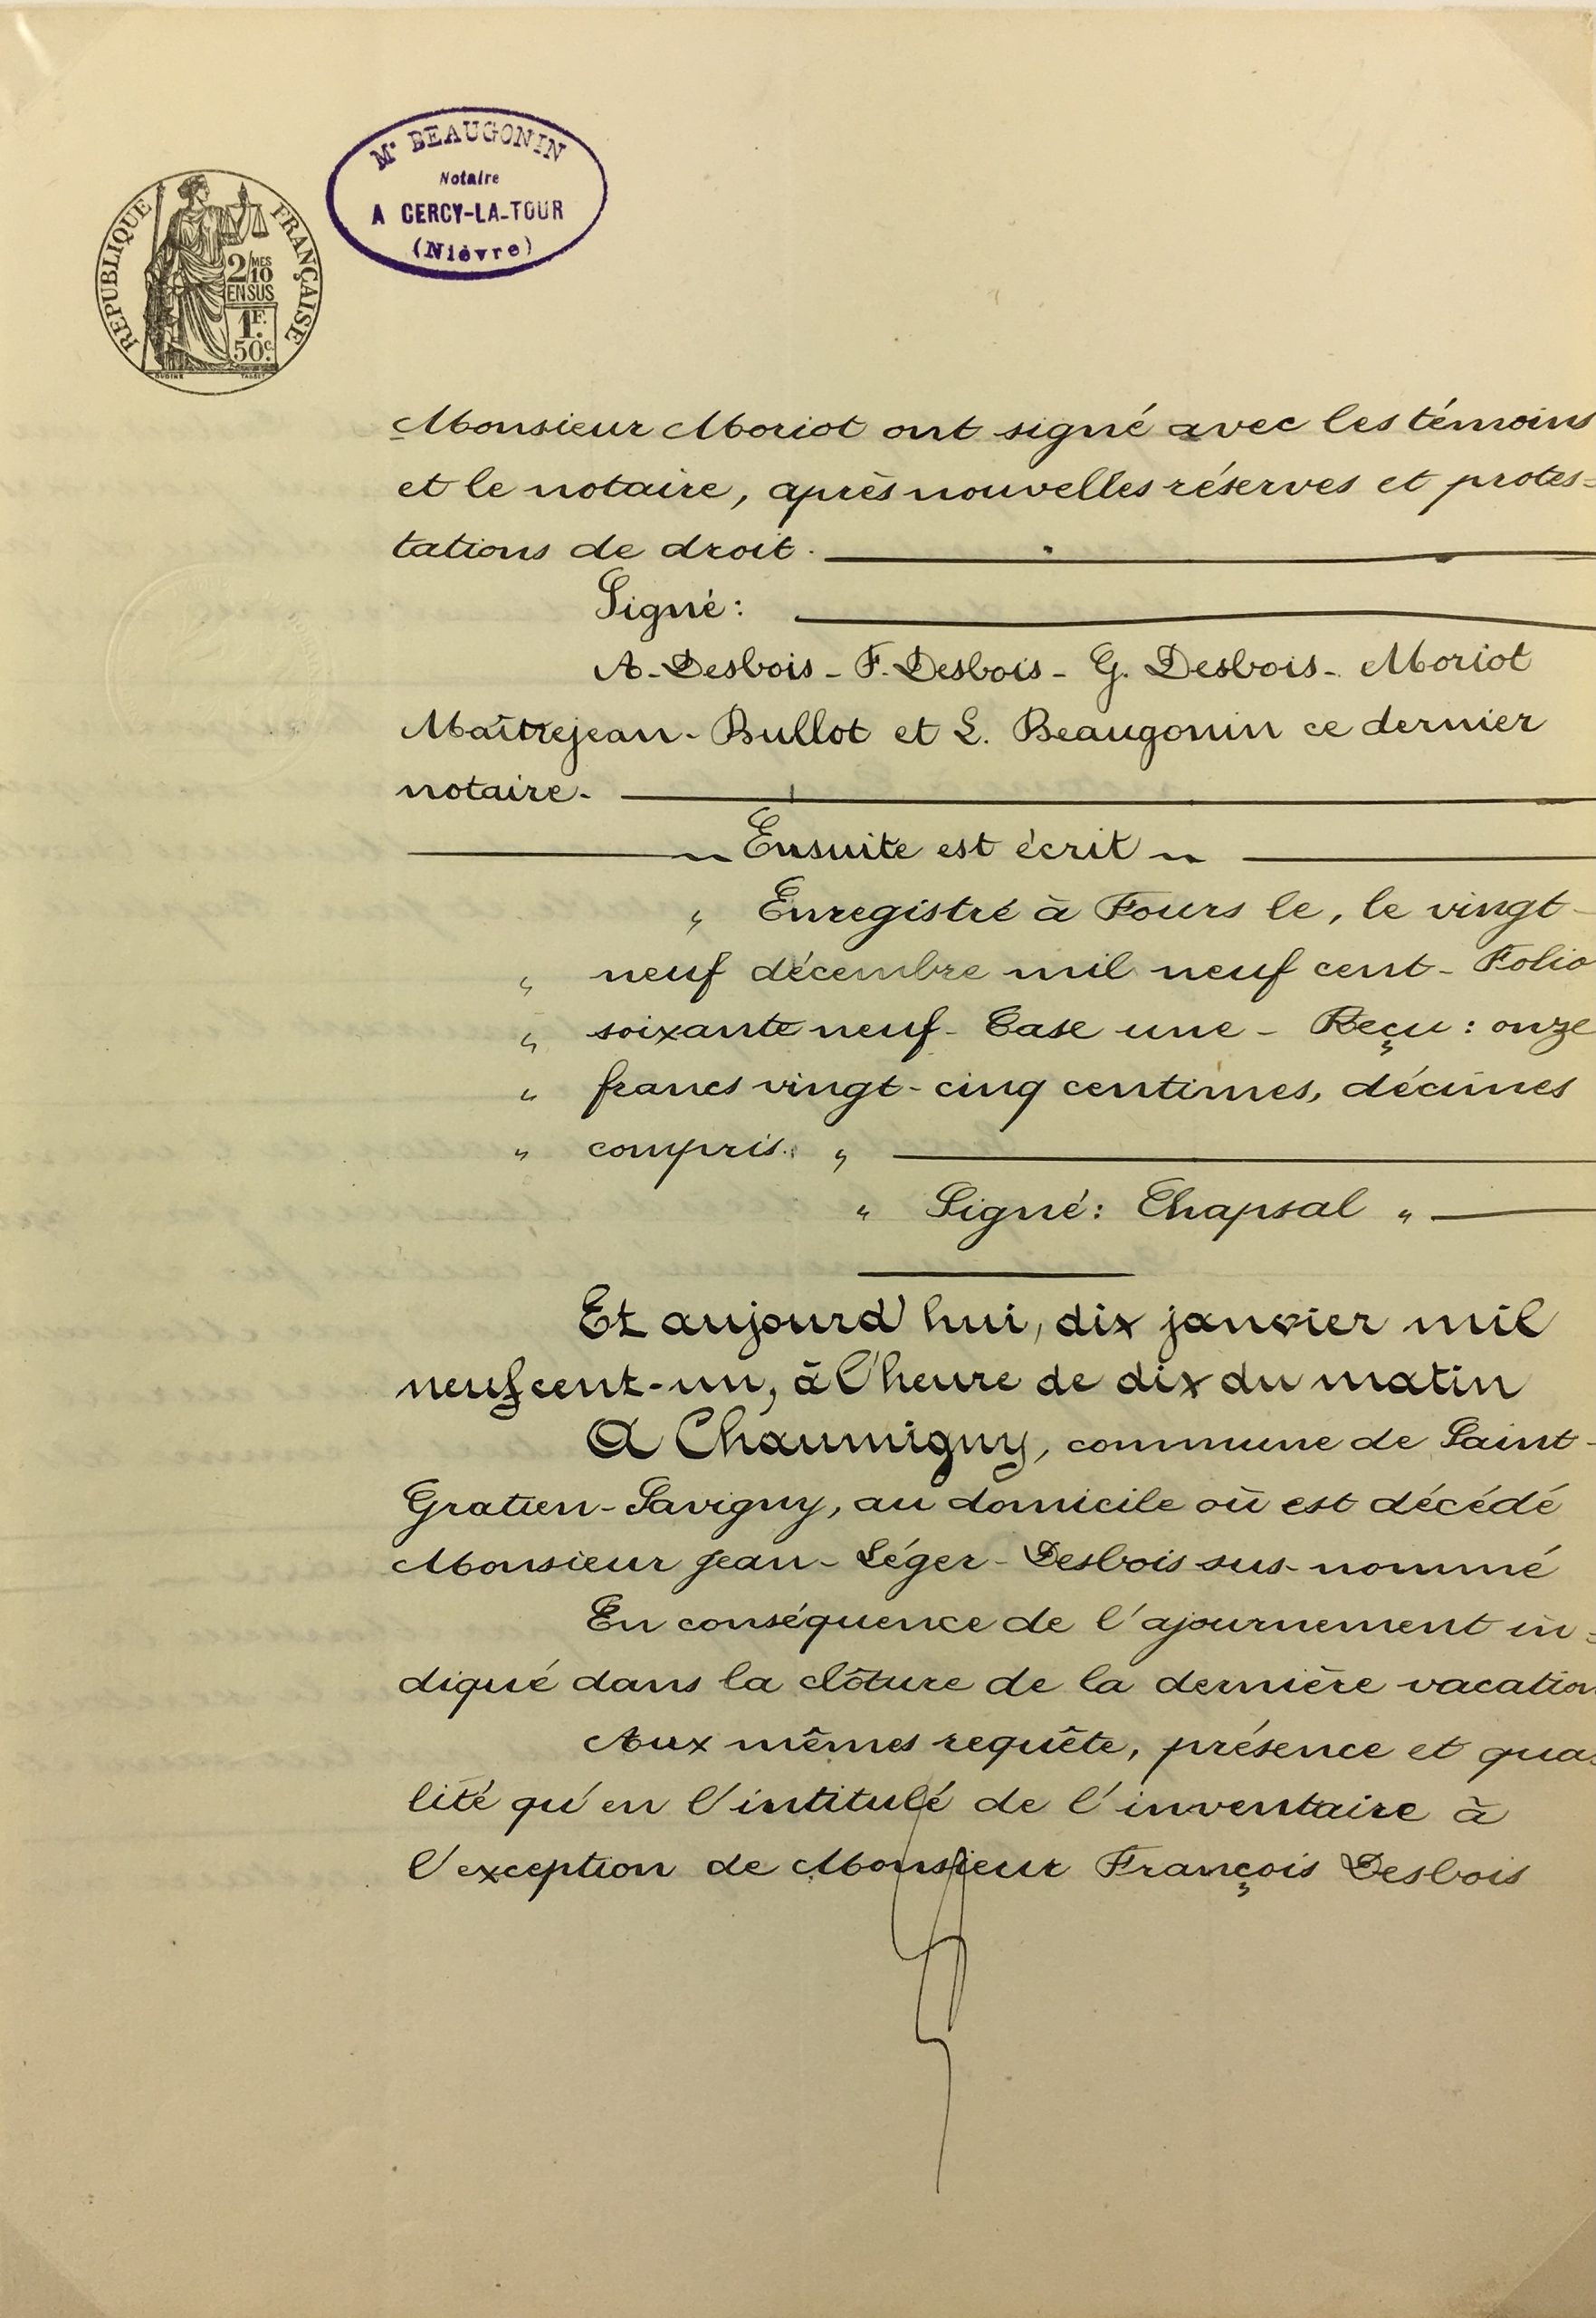 Me BEAUGONIN
Notaire
A CERCY-LA-TOUR
(Nièvre)
RÉPUBLIQUE FRANÇAISE
2/MES 10
EN SUS
1F.
50c.
Monsieur Moriot ont signé avec les témoins
et le notaire, après nouvelles réserves et protes=
tations de droit.
Signé:
A. Desbois - F. Desbois - G. Desbois - Moriot
Maîtrejean - Bullot et L. Beaugonin ce dernier
notaire -
Ensuite est écrit
" Enregistré à Fours le, le vingt-
" neuf décembre mil neuf cent - Folio
" soixante neuf - Case une - Reçu : onze
" francs vingt-cinq centimes, décimes
" compris. "
" Signé: Chapsal "
Et aujourd'hui, dix janvier mil
neuf cent-un, à l'heure de dix du matin
A Chaumigny, commune de Saint-
Gratien-Savigny, au domicile où est décédé
Monsieur Jean-Léger-Desbois sus-nommé
En conséquence de l'ajournement in=
diqué dans la clôture de la dernière vacation
Aux mêmes requête, présence et qua=
lité qu'en l'intitulé de l'inventaire à
l'exception de Monsieur François Desbois